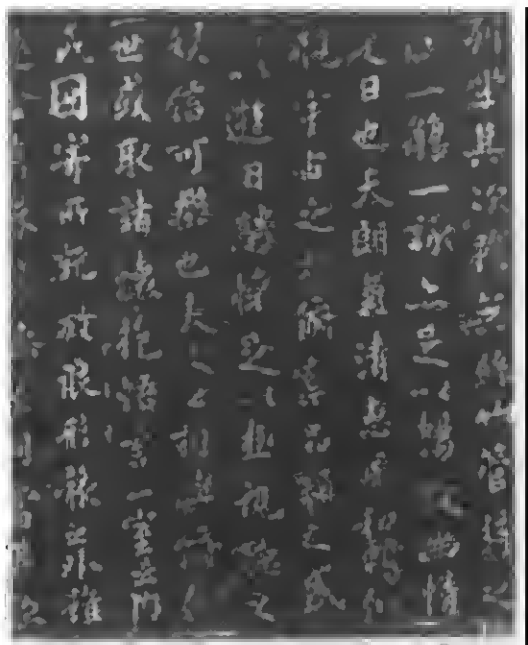 列坐其次雖無絲竹管絃之
一觴一詠亦足以暢敘幽情
是日也天朗氣清惠風和暢仰
觀宇宙之大俯察品類之盛
以遊目騁懷足以極視聽之
娛信可樂也夫人之相與俯仰
一世或取諸懷抱悟言一室之內
或因寄所託放浪形骸之外雖